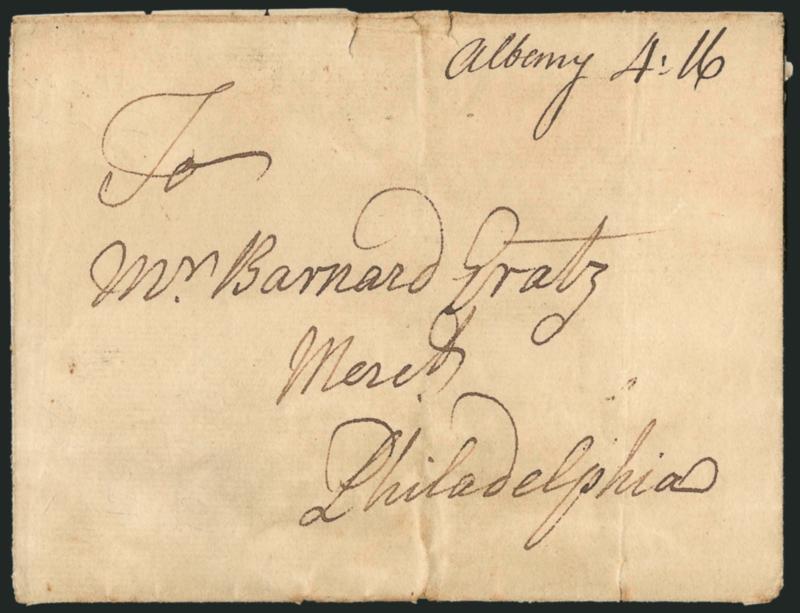 Albany 4:16
To
Mr. Barnard Gratz
Merch
Philadelphia